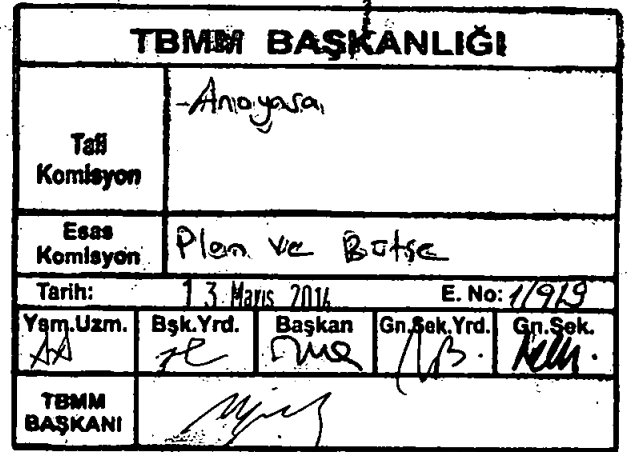 TBMM BAŞKANLIĞI
-Anayasa
Tali
Komisyon
Esas
Komisyon
Plan ve Bütçe
Tarih: 13 Mayıs 2014 E. No: 1/919
Ysm.Uzm. Bşk.Yrd. Başkan Gn.Sek.Yrd. Gn.Sek.
TBMM
BAŞKANI